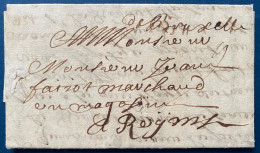 de Bruxelle
Monsieur
Monsieur
marchand
en magasin
a Reyms